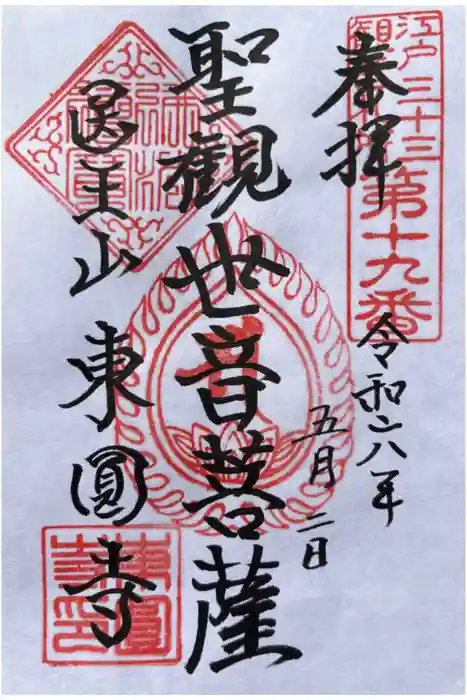 江戸三十三
第十九番
奉拝
令和六年
五月二日
聖観世音菩薩
医王山 東圓寺